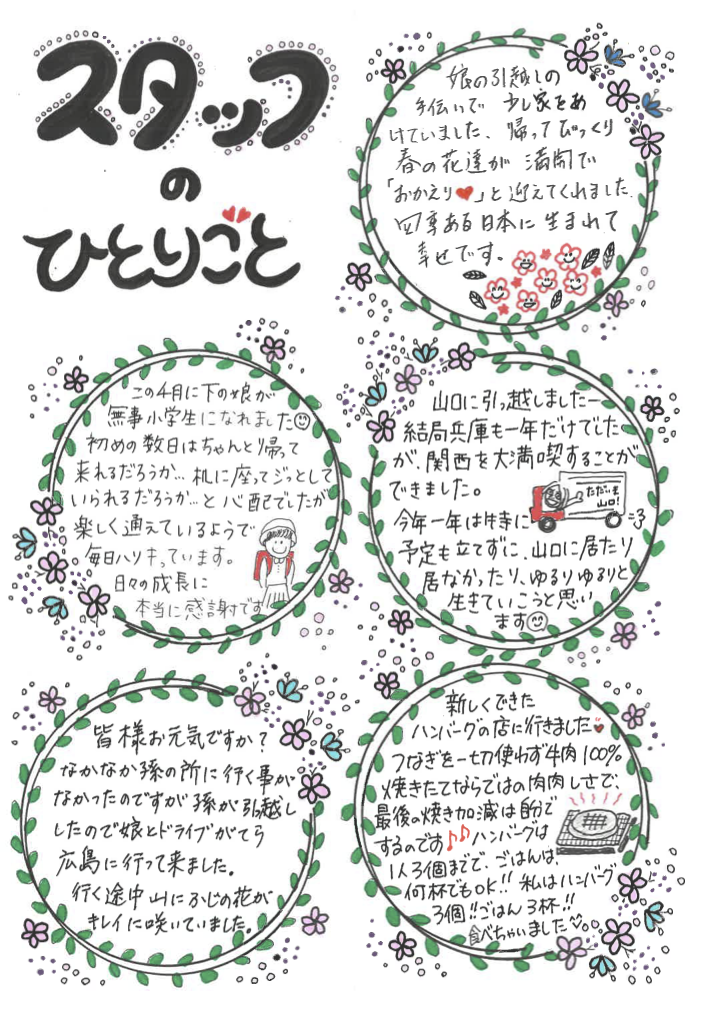 スタッフ
の
ひとりごと
娘の引越しの
手伝いで 少し家をあ
けていました、帰ってびっくり
春の花達が 満開で
「おかえり♥」と迎えてくれました、
四季ある日本に生まれて
幸せです。
この4月に下の娘が
無事小学生になれました
初めの数日はちゃんと帰って
来れるだろうか…机に座ってジッとして
いられるだろうか…と心配でしたが
楽しく通えているようで
毎日ハリキっています。
日々の成長に
本当に感謝です
山口に引っ越しましたー
結局兵庫も一年だけでした
が、関西を大満喫することが
できました。
ただいま
山口!
今年一年は特に
予定も立てずに、山口に居たり
居なかったり、ゆるりゆるりと
生きていこうと思い
ます
皆様お元気ですか?
なかなか孫の所に行く事が
なかったのですが孫が引越し
したので娘とドライブがてら
広島に行って来ました。
行く途中山にふじの花が
キレイに咲いていました。
新しくできた
ハンバーグの店に行きました♥
つなぎを一切使わず牛肉100%
焼きたてならではの肉肉しさで、
最後の焼き加減は自分で
するのです♪♪ハンバーグは
1人3個までで、ごはんは、
何杯でもOK!!私はハンバーグ
3個!!ごはん3杯!!
食べちゃいました♡。